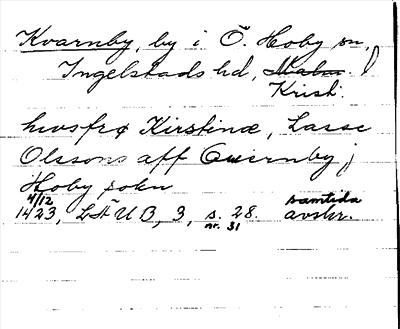 Kvarnby, by i Ö. Hoby sn,
Ingelstads hd, Malm.
Krist.
hwsfrø Kirstinæ, Lasse
Olssons aff Quernby j
Hoby sokn
4/12
1423, LÄUB, 3, s. 28. samtida
nr. 31 avskr.